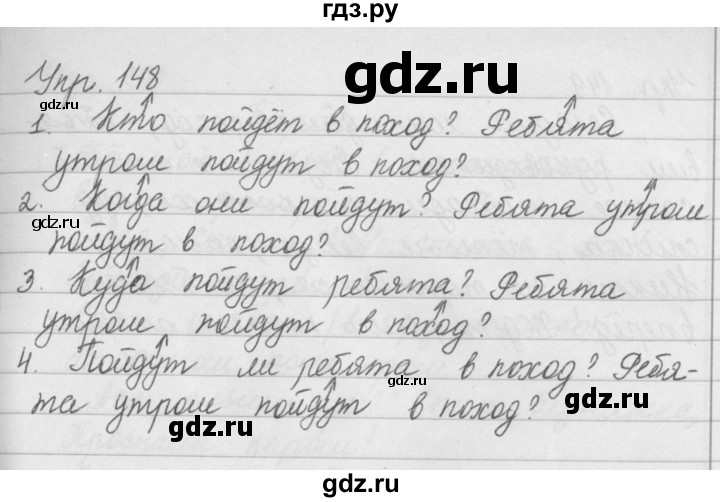 гдз.ру
Упр. 148
gdz.ru
1. Кто пойдёт в поход? Ребята
утром пойдут в поход?
gdz.ru
2. Когда они пойдут? Ребята утром
gdz.ru
пойдут в поход?
3. Куда пойдут ребята? Ребята
gdz.ru
утром пойдут в поход?
4. Пойдут ли ребята в поход? Ребя-
gdz.ru
та утром пойдут в поход?
gdz.ru
gdz.ru
gdz.ru